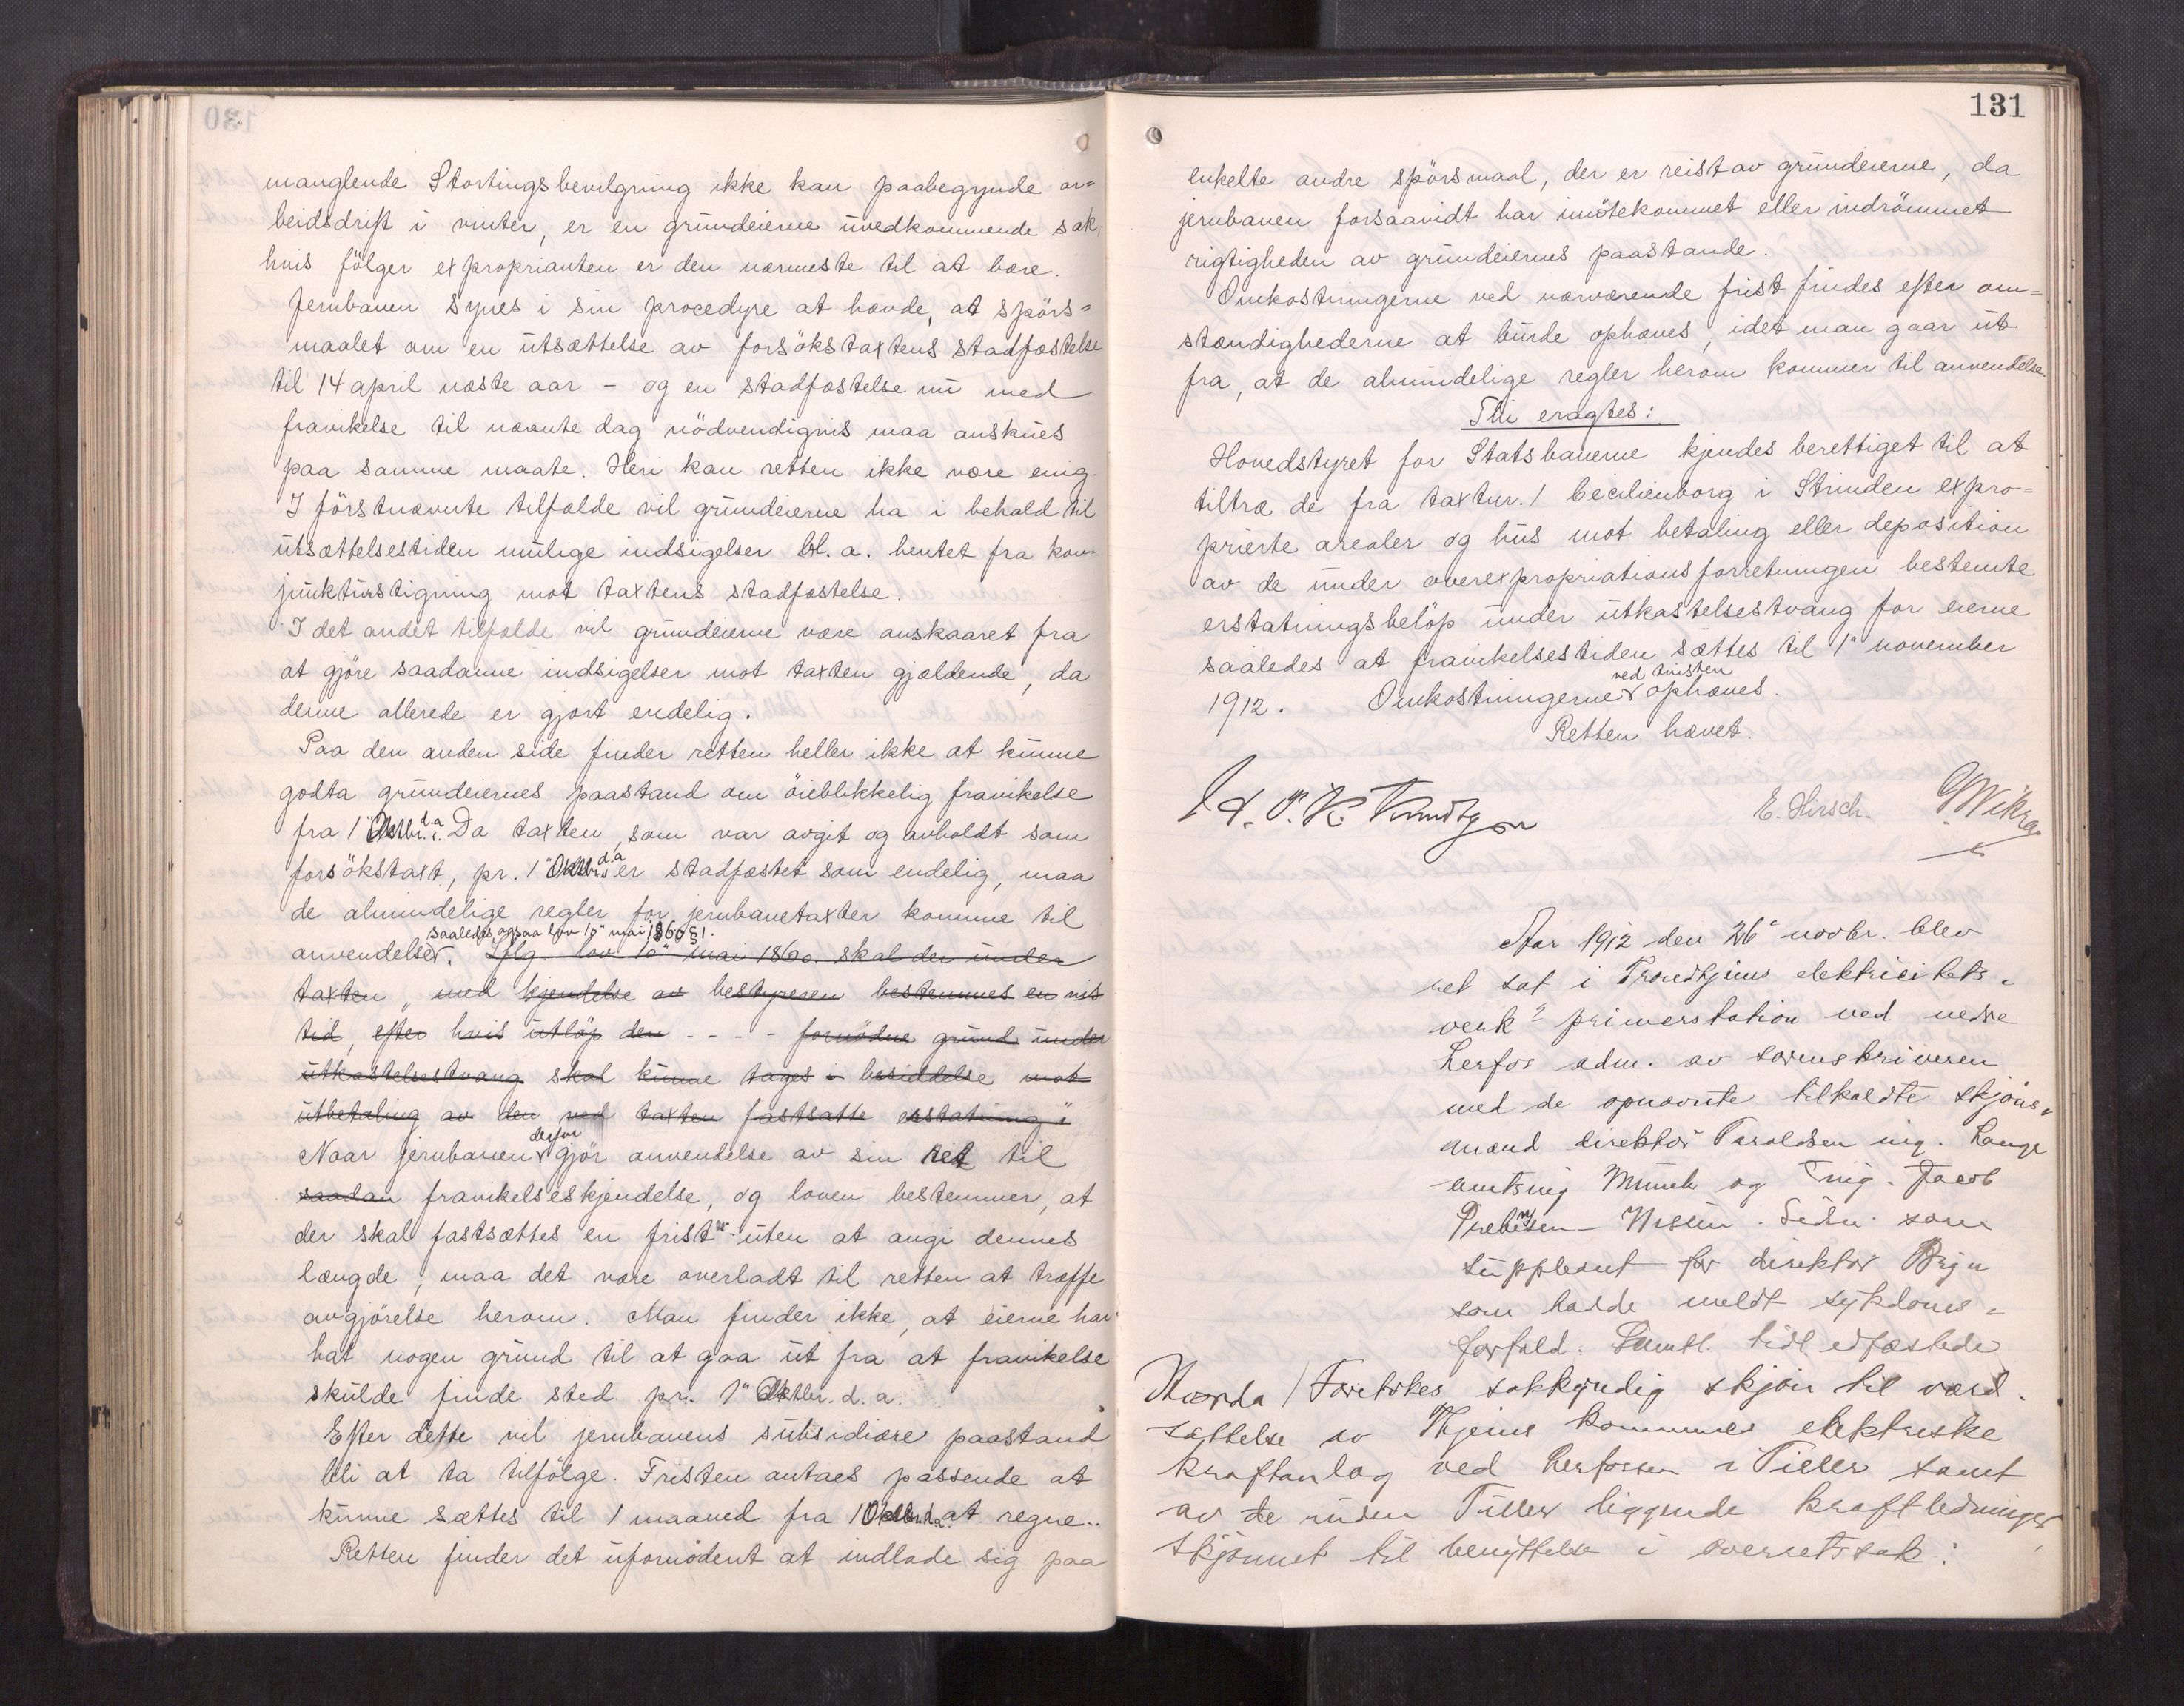 130
manglende Stortingsbevilgning ikke kan paabegynde ar=
beidsdrift i vinter, er en grundeierne uvedkommende sak,
hvis følger exproprianten er den nærmeste til at bære.
Jernbanen synes i sin procedyre at hævde, at spörs=
maalet om en utsættelse av forsökstaxtens stadfæstelse
til 14 april næste aar – og en stadfæstelse nu med
fravikelse til nævnte dag nödvendigvis maa anskues
paa samme maate. Heri kan retten ikke være enig.
I förstnævnte tilfælde vil grundeierne ha i behold til
utsættelsestiden mulige indsigelser bl. a. hentet fra kon-
junkturstigning mot taxtens stadfæstelse.
I det andet tilfælde vil grundeierne være avskaaret fra
at gjöre saadanne indsigelser mot taxten gjældende, da
denne allerede er gjort endelig.
Paa den anden side finder retten heller ikke at kunne
godta grundeiernes paastand om öieblikkelig fravikelse
fra 1 Oktbr. d.a. Da taxten, som var avgit og avholdt som
forsökstaxt, pr. 1 Oktbr. d.a er stadfæstet som endelig, maa
de almindelige regler for jernbanetaxter komme til
saaledes ogsaa lov 10 mai 1860 § 1.
anvendelse. Iflg. lov 10 mai 1860. skal der under
taxten „med kjendelse av bestyreren bestemmes en vis
tid, efter hvis utlöp den - - - - fornödne grund under
utkastelsestvang skal kunne tages i besiddelse mot
utbetaling av den ved taxten fastsatte erstatning"
Naar jernbanen derfor gjör anvendelse av sin ret til
saadan fravikelseskjendelse, og loven bestemmer, at
der skal fastsættes en frist uten at angi dennes
længde, maa det være overladt til retten at træffe
avgjörelse herom. Man finder ikke, at eierne har
hat nogen grund til at gaa ut fra at fravikelse
skulde finde sted pr. 1 Oktbr. d. a.
Efter dette vil jernbanens subsidiære paastand
bli at ta tilfölge. Fristen antaes passende at
kunne sættes til 1 maaned fra 1 Oktbr. d.a at regne..
Retten finder det ufornödent at indlade sig paa
131
enkelte andre spörsmaal, der er reist av grundeierne, da
jernbanen forsaavidt har imötekommet eller indrömmet
rigtigheden av grundeiernes paastande.
Omkostningerne ved nærværende frist findes efter om=
stændighederne at burde ophæves, idet man gaar ut
fra, at de almindelige regler herom kommer til anvendelse.
Thi eragtes:
Hovedstyret for Statsbanerne kjendes berettiget til at
tiltræ de fra taxtnr. 1 Cecilienborg i Strinden expro=
prierte arealer og hus mot betaling eller deposition
av de under overexpropriationsforretningen bestemte
erstatningsbelöp under utkastelsestvang for eierne
saaledes at fravikelsestiden sættes til 1 november
1912. Omkostningerne ved tvisten ophæves.
Retten hævet.
E. Hirsch.
Aar 1912 den 26 novbr. blev
ret sat i Trondhjems elektricitets=
verk's primærstation ved nedre
Lerfos adm. av sorenskriveren
med de opnævnte tilkaldte skjöns=
mænd direktör Taraldsen ing. Lange
amtsing Munch og ing. Jacob
Nissen. Sidn. som
suppleant for direktör
som hadde meldt sykdoms=
forfald. Samtl. tidl edfæstede
Hvorda / Foretokes sakkyndig skjön til værd=
sættelse av Thjems kommunes elektriske
kraftanlæg ved Lerfossen i Tiller samt
av de inden Tiller liggende kraftledninger
Skjönnet til benyttelse i overretssak: